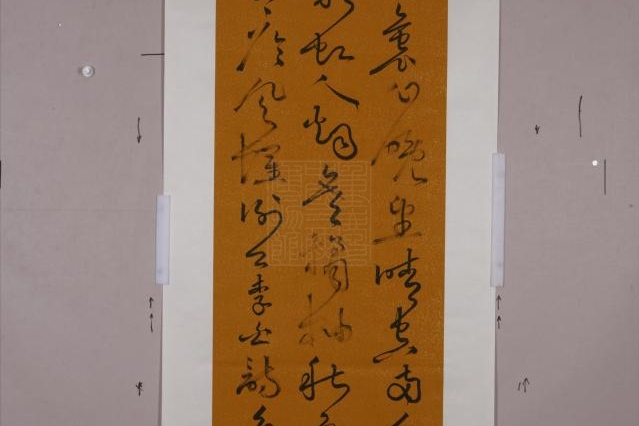 裏山晚望晴空兩
彩虹人烟寒橘柚秋色
臨風懷謝公李白詩